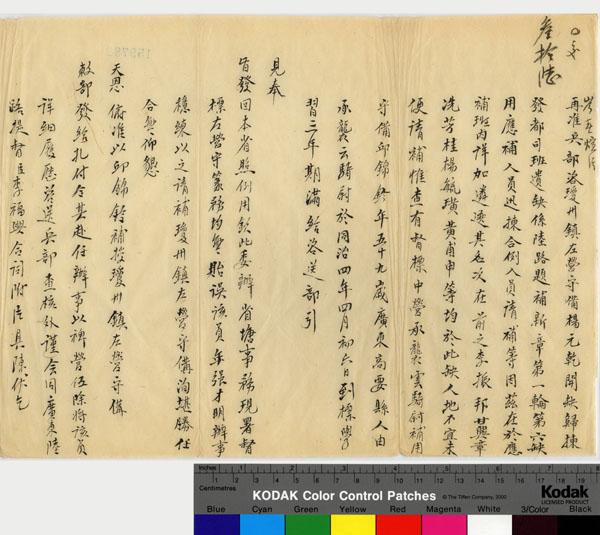 叁拾陸
再准兵部咨瓊州鎮左營守備楊元乾開缺歸揀
發都司班遺缺係陸路題補新章第一輪第六缺
用應補人員迅揀合例人員請補等因茲在於應
補班內詳加遴選其名次在前之李振邦甘興章
冼芳桂楊毓璜黃甫申等均於此缺人地不宜未
便請補惟查有督標中營承襲雲騎尉補用
守備邱錦銓年五十九歲廣東高要縣人由
承襲雲騎尉於同治四年四月初六日到標學
習三年期滿給咨送部引
見奉
旨發回本省照例用欽此委辦省塘事務現署督
標左營守篆務均無貽誤該員年強才明辦事
穩練以之請補瓊州鎮左營守備洵堪勝任
合無仰懇
天恩俯准以邱錦銓補授瓊州鎮左營守備
敕部發給札付令其赴任辦事以裨營伍除將該員
詳細履歷咨送兵部查核外謹會同廣東陸
路提督臣李福興合詞附片具陳伏乞
159782
Inches
Centimetres
KODAK Color Control Patches
© The Tiffen Company, 2000
Kodak
LICENSED PRODUCT
Blue Cyan Green Yellow Red Magenta White 3/Color Black